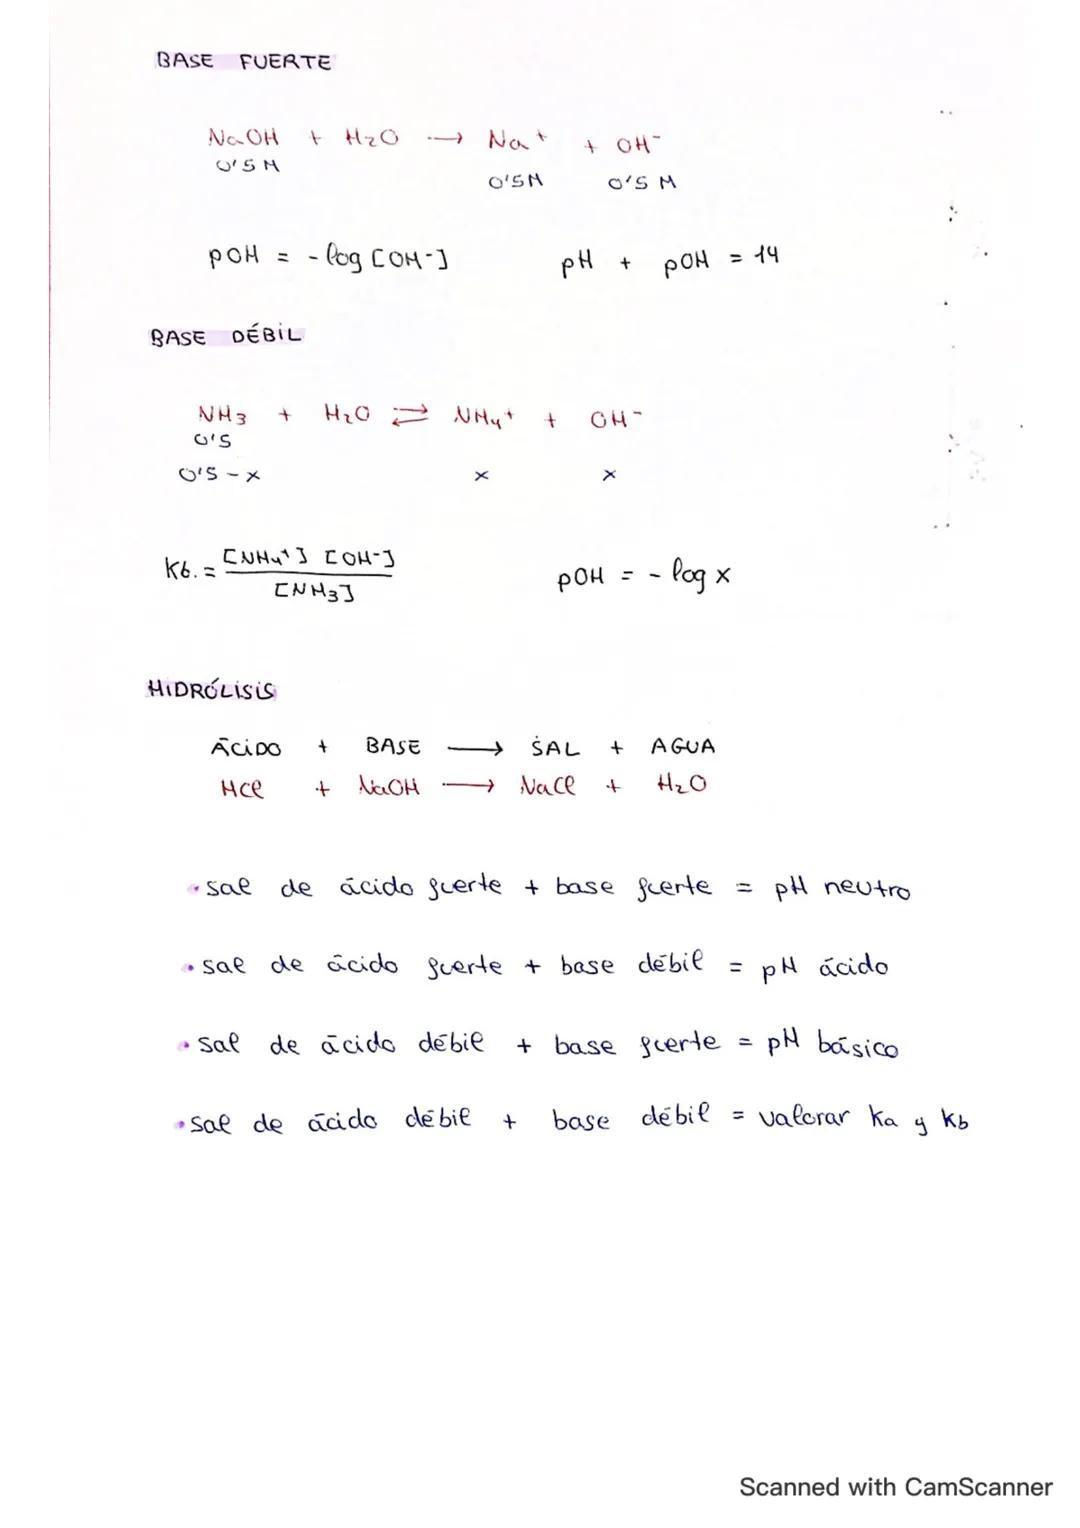 BASE FUERTE
NaOH + H₂O → Na⁺ + OH⁻
0'5 M 0'5M 0'5 M
pOH = - log [OH-] pH + pOH = 14
BASE DÉBIL
NH₃ + H₂O ⇄ NH₄⁺ + OH⁻
0'5
0'5 - x x x
Kb. = [NH₄⁺] [OH-] pOH = - log x
[NH₃]
HIDRÓLISIS
ÁCIDO + BASE → SAL + AGUA
HCl + NaOH → NaCl + H₂O
• sal de ácido fuerte + base fuerte = pH neutro
• sal de ácido fuerte + base débil = pH ácido
• sal de ácido débil + base fuerte = pH básico
• sal de ácido débil + base débil = valorar Ka y Kb
Scanned with CamScanner